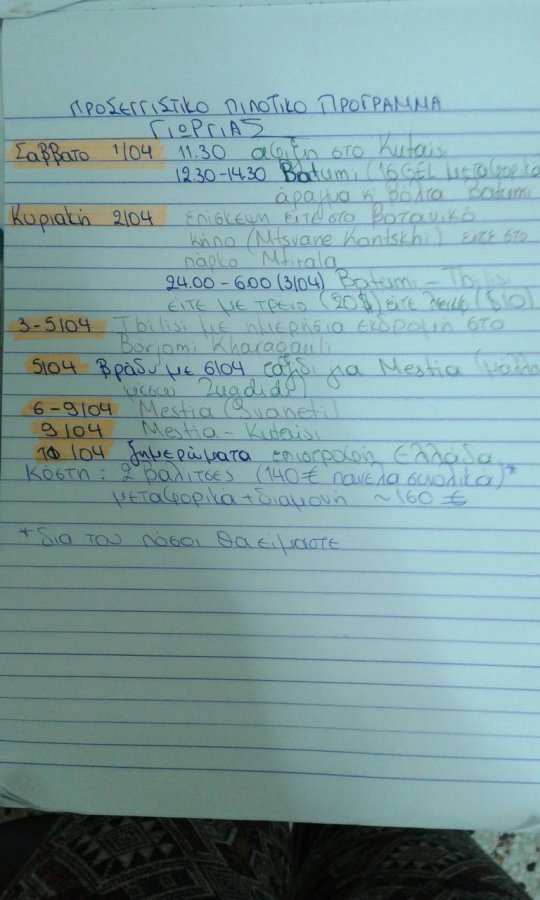 ΠΡΟΣΕΓΓΙΣΤΙΚΟ ΠΙΛΟΤΙΚΟ ΠΡΟΓΡΑΜΜΑ
ΓΙΩΡΓΙΑΣ
Σαββατο 1/04 11.30 αφιξη στο Kutaisi
12.30-14.30 Batumi (16 GEL μεταφορικα
άραγμα ή βόλτα Batumi
Κυριακή 2/04 επίσκεψη είτε στο Βοτανικό
κήπο (Mtsvane Kontskhi) είτε στο
πάρκο Mtirala
24.00 - 6.00 (3/04) Batumi - Tbilisi
είτε με τρένο (20$) είτε ($10)
3-5/04 Tbilisi με ημερήσια εκδρομή στο
Borjomi Kharagauli
5/04 βράδυ με 6/04 ταξίδι για Mestia (μάλλον
μέσω Zugdidi)
6-9/04 Mestia (Svaneti)
9/04 Mestia - Kutaisi
10/04 ξημερώματα επιστροφή Ελλάδα
Κόστη: 2 βαλίτσες (140€ πανέλα συνολικά)*
μεταφορικα + διαμονή ~160 €
*δια του πόσοι θα είμαστε